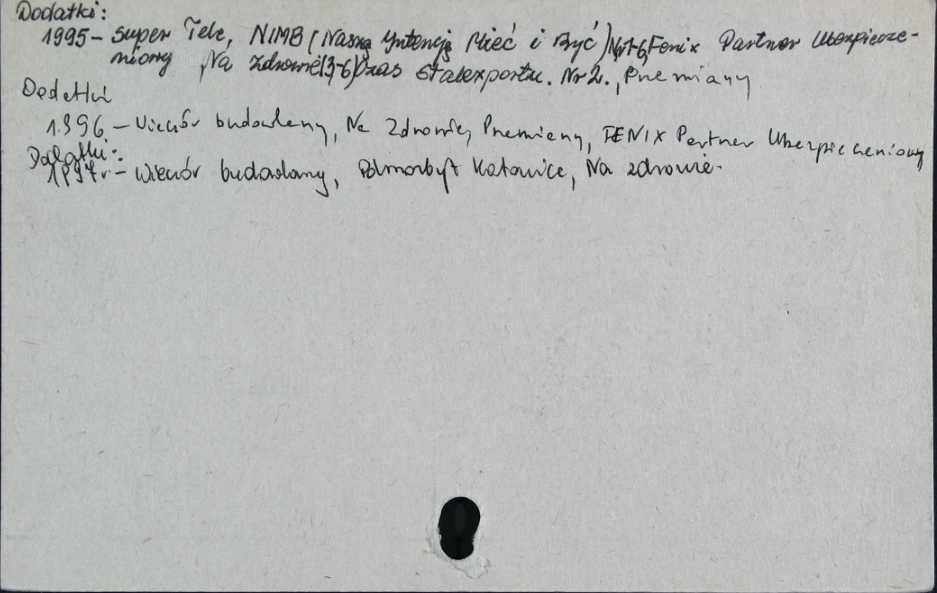 Dodatki:
1995 - Super Tele, NIMB (Naszą Intencją Mieć i Być) Nr 1-6, Fenix Partner Ubezpiecze-
niowy, Na zdrowie (3-6) Czas Stalexportu. Nr 2., Przemiany
Dodatki
1996 - Wieczór budowlany, Na Zdrowie, Przemiany, FENIX Partner Ubezpieczeniowy
Dodatki:
1997r. - Wieczór budowlany, Polmozbyt Katowice, Na zdrowie.